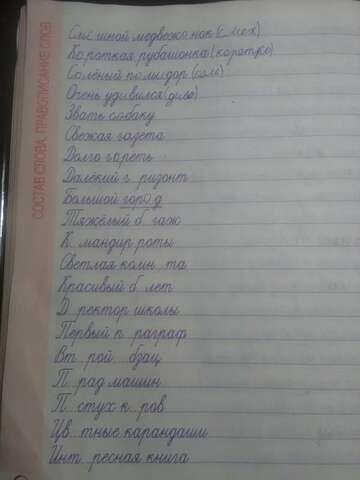 СОСТАВ СЛОВА. ПРАВОПИСАНИЕ СЛОВ
Смешной медвежонок (смех)
Короткая рубашонка (коротко)
Солёный помидор (соль)
Очень удивился (диво)
Звать собаку
Свежая газета
Долго гореть
Далёкий г ризонт
Большой город
Тяжёлый б гаж
К мандир роты
Светлая комн та
Красивый б лет
Д ректор школы
Первый п раграф
Вт рой бзац
П рад машин
П стух к ров
Цв тные карандаши
Инт ресная книга